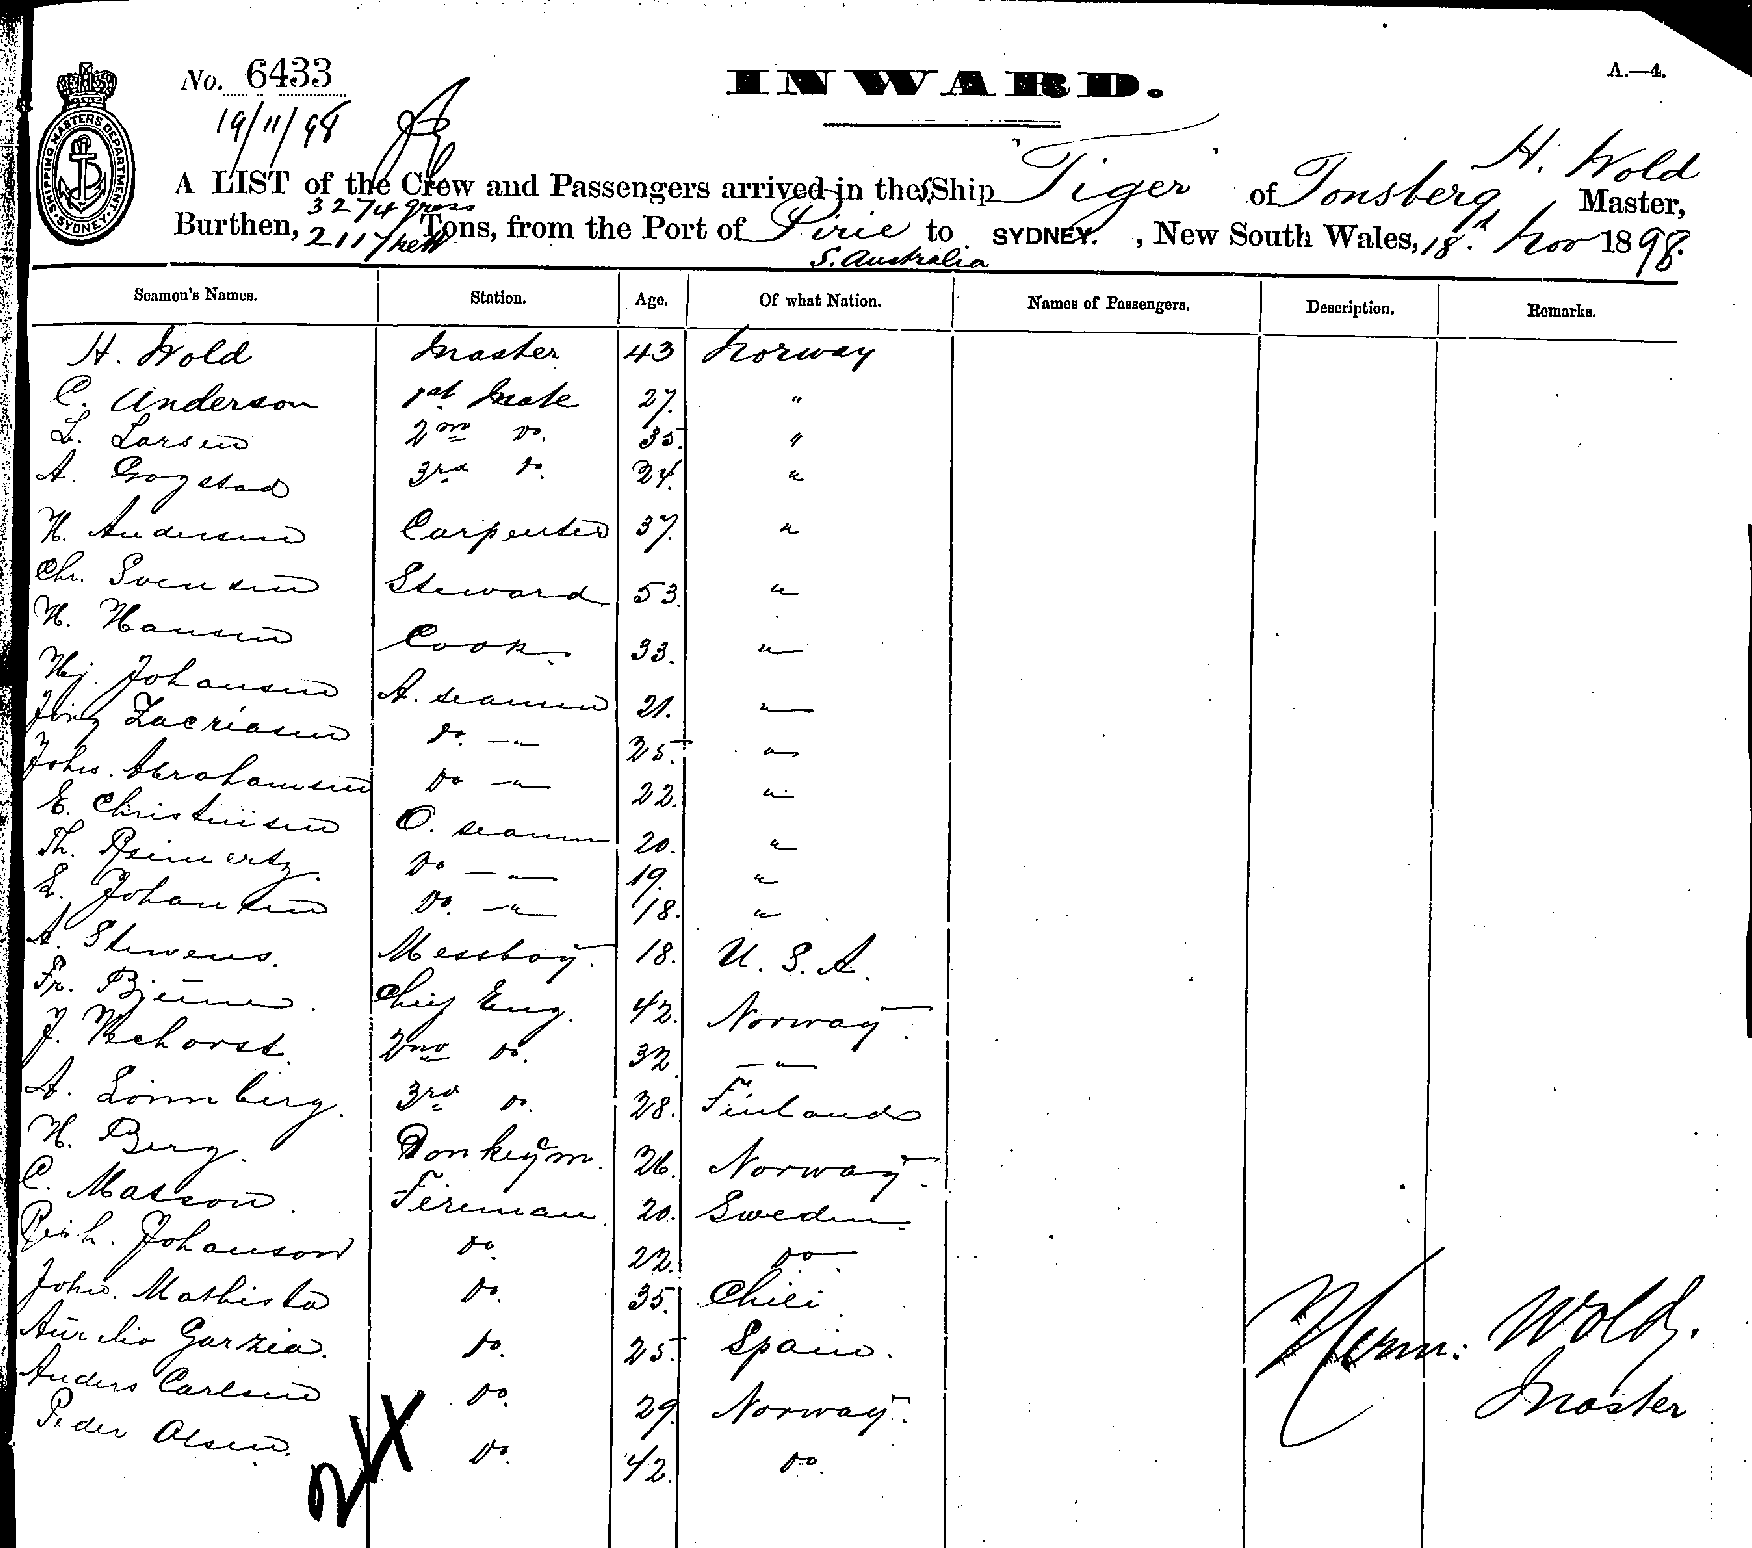 No. 6433
INWARD.
A.—4.
19/11/98
SHIPPING MASTERS DEPARTMENT SYDNEY
H. Wold
A LIST of the Crew and Passengers arrived in the S.Ship "Tiger" of Tonsberg Master,
3274 gross
Burthen, 2117 nett Tons, from the Port of Pirie to SYDNEY. , New South Wales, 18th Nov 1898.
S. Australia
Seamen's Names. Station. Age. Of what Nation. Names of Passengers. Description. Remarks.
H. Wold Master 43 Norway
C. Anderson 1st Mate 27. "
L. Larsen 2nd do. 35. "
A. Gogstad 3rd do. 24. "
H. Andersen Carpenter 37. "
Chr. Svensen Steward 53. "
H. Hansen Cook. 33. "
Hj. Johansen A. seamen 21. "
Zacriasen do. " 25. "
Johs. Abrahamsen do " 22. "
E. Christensen O. seamen 20. "
Th. Reinertz. do " 19. "
L. Johansen do. " 18. "
A. Stewens. Messboy. 18. U. S. A.
Fr. Bjerum. Chief Eng. 42. Norway.
J. 2nd do. 32 "
A. Lönnberg. 3rd do. 28. Finland
H. Berg. Donkeym. 26. Norway.
C. Matsson. Fireman. 20. Sweden.
Rich. Johanson do. 22. do
John. Mathista do. 35. Chili.
Aurelio Garzia. do. 25. Spain.
Anders Carlsen do. 29. Norway.
Peder Olsen. do. 42. do.
24
Herm: Wold.
Master